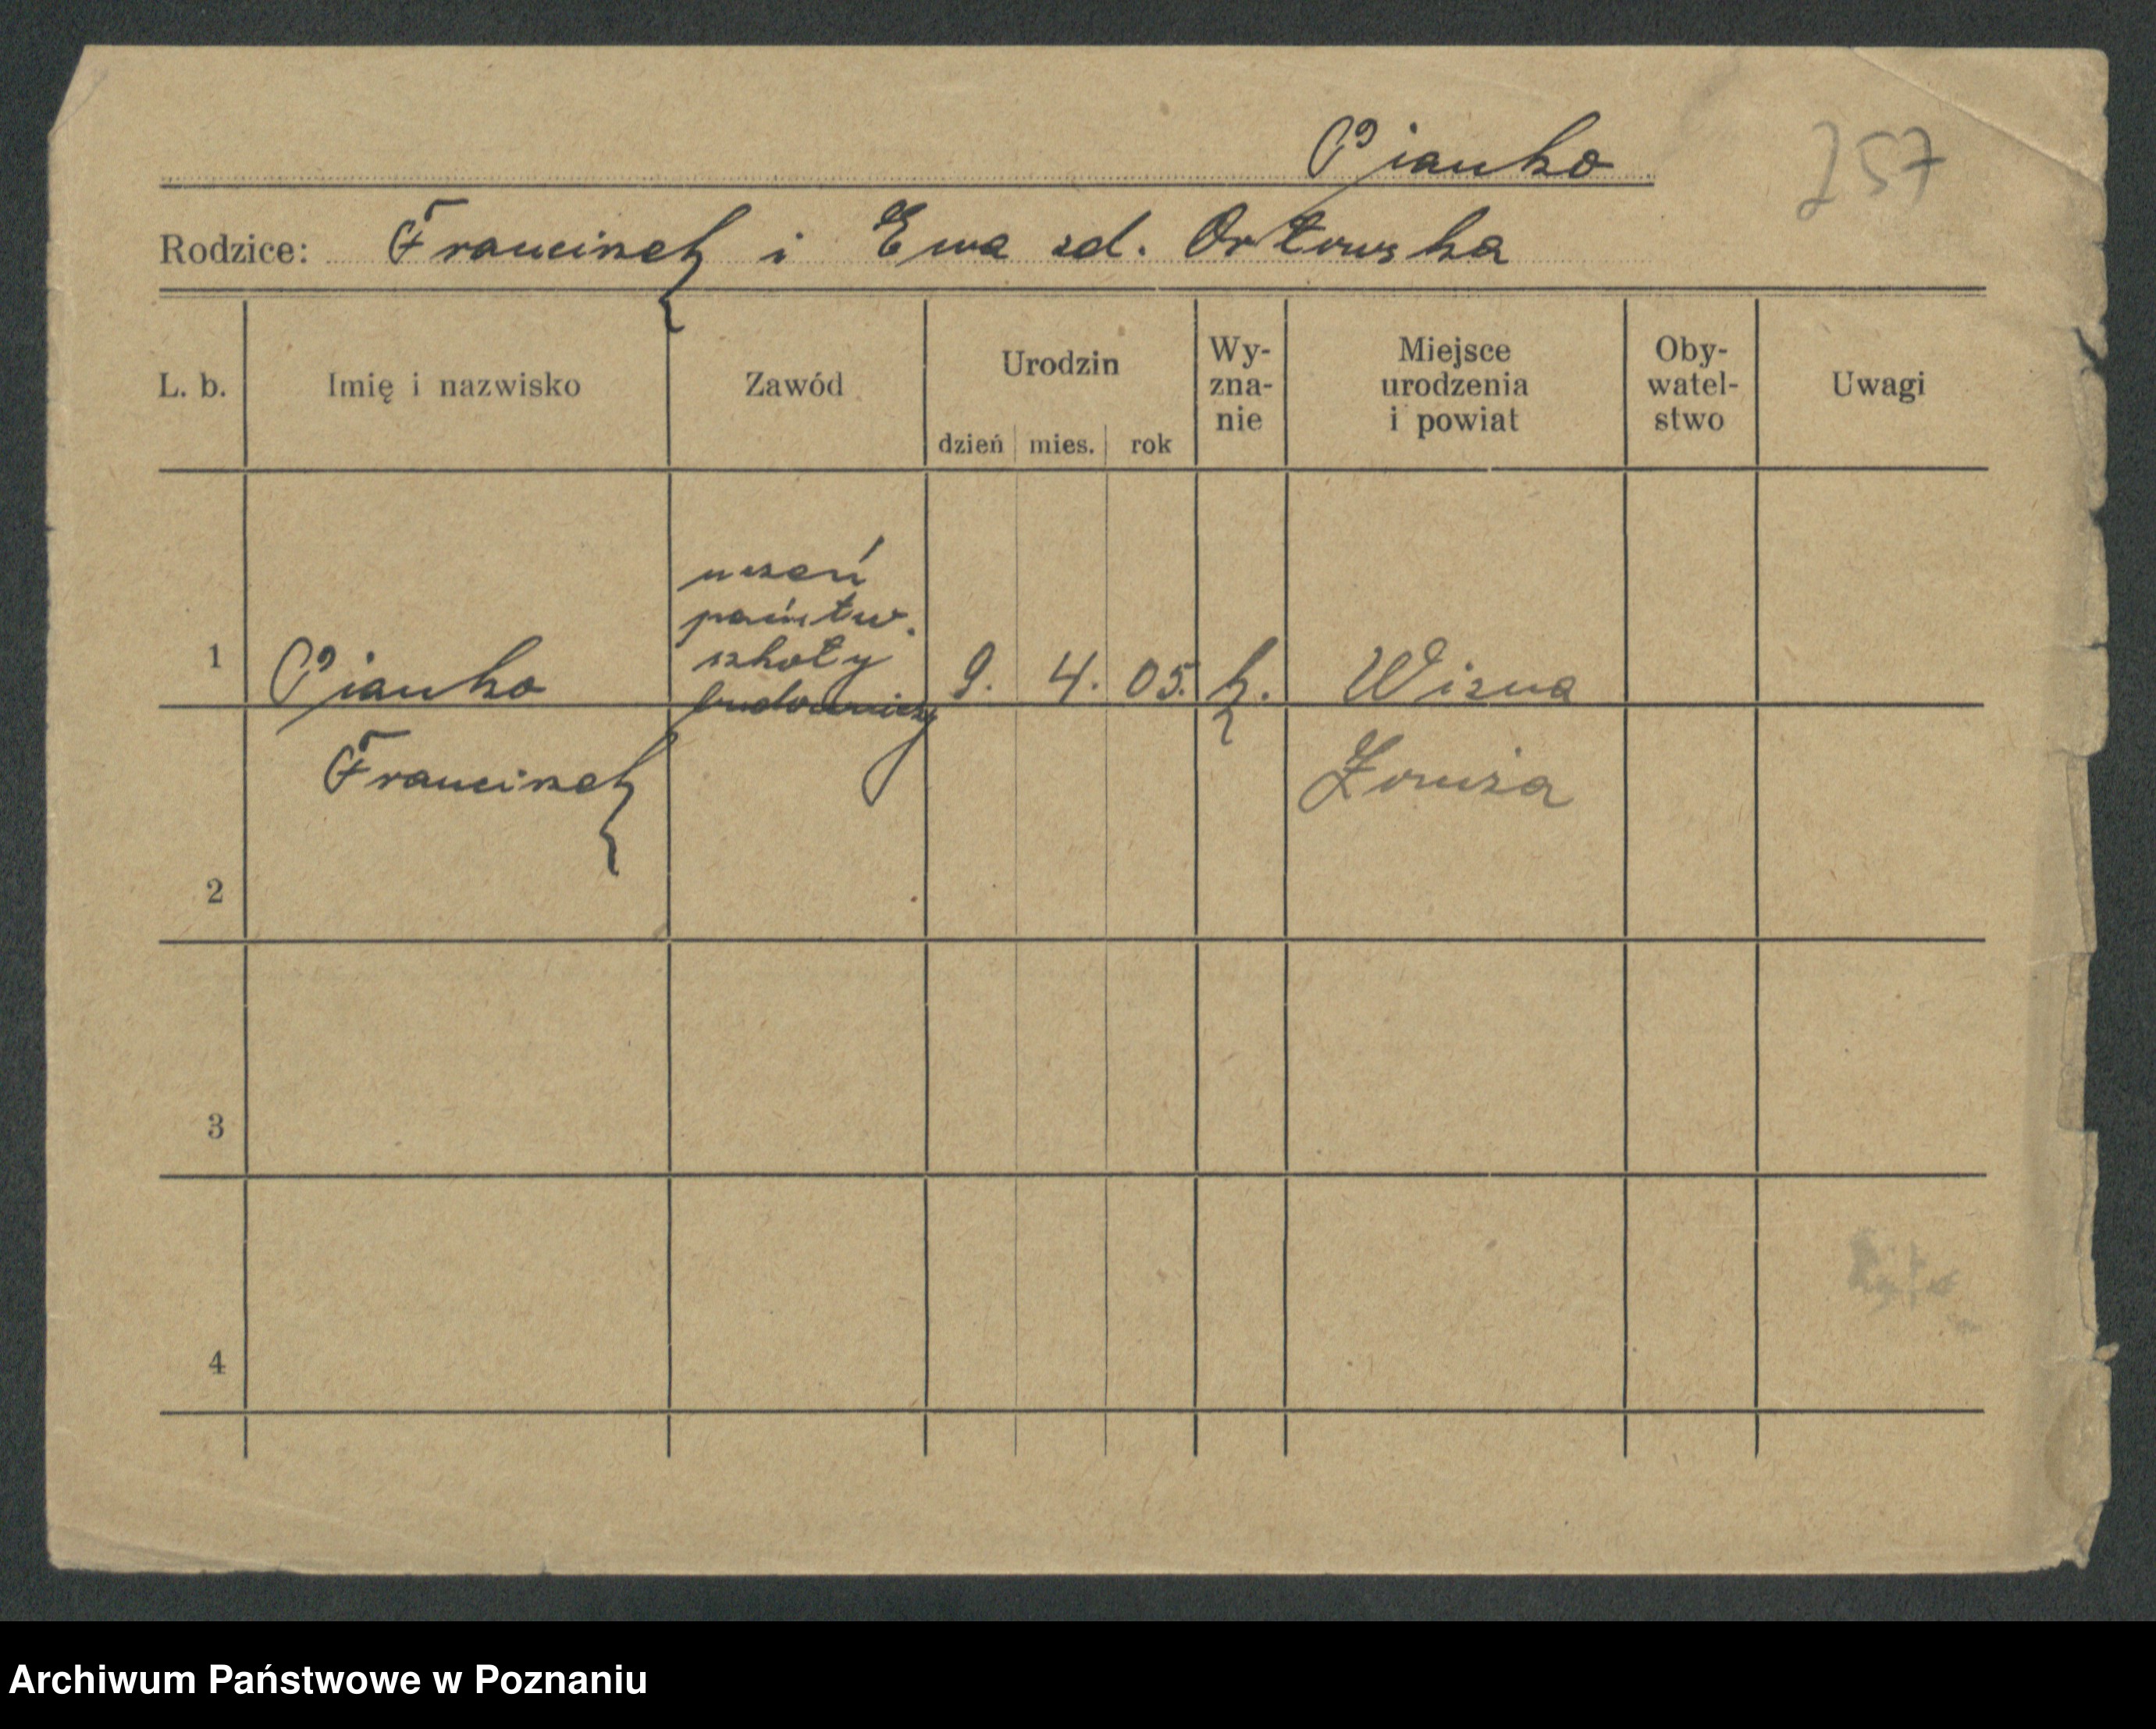 Pianko
257
Rodzice: Franciszek i Ewa zd. Orłowska
L. b. Imię i nazwisko Zawód Urodzin dzień mies. rok Wy-
zna-
nie Miejsce
urodzenia
i powiat Oby-
watel-
stwo Uwagi
uczeń
państw.
szkoły
1 Pianko budowniczej 9. 4. 05. k. Wizna
Franciszek Łomża
2
3
4
Archiwum Państwowe w Poznaniu